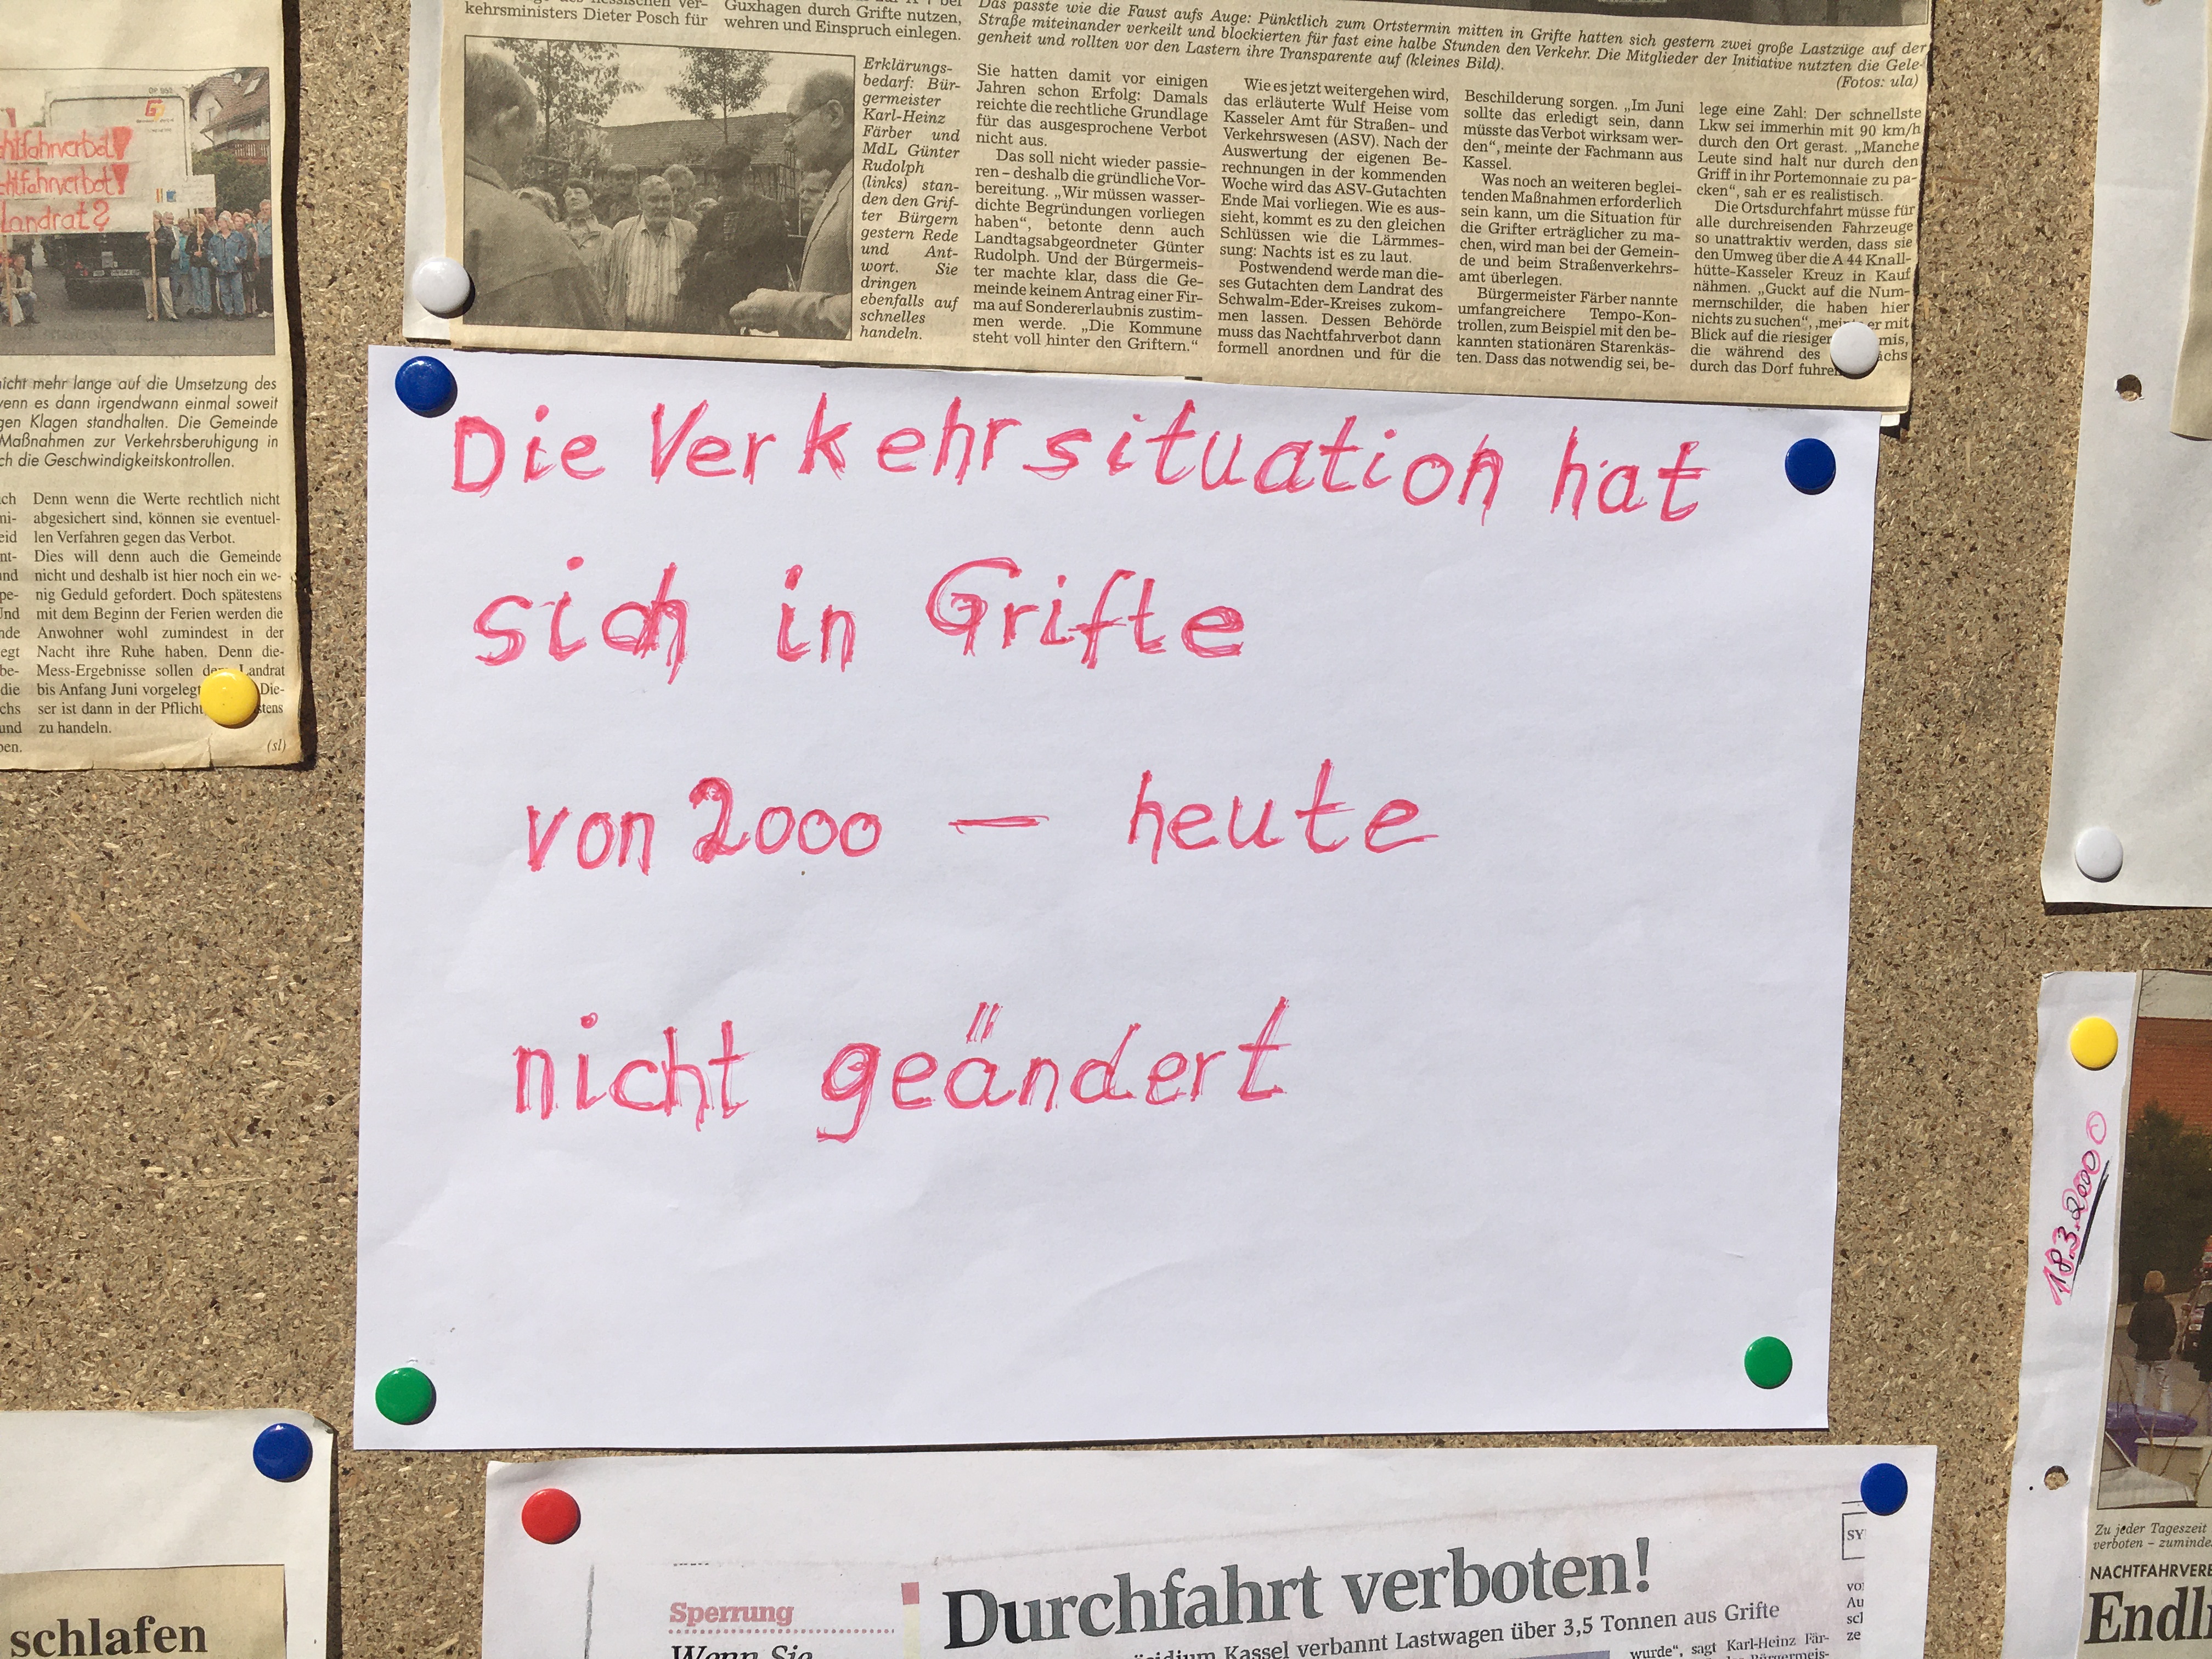 chtfahrverbot!
chtfahrverbot!
Landrat?
nicht mehr lange auf die Umsetzung des
wenn es dann irgendwann einmal soweit
gen Klagen standhalten. Die Gemeinde
Maßnahmen zur Verkehrsberuhigung in
ch die Geschwindigkeitskontrollen.
Denn wenn die Werte rechtlich nicht
abgesichert sind, können sie eventuel-
len Verfahren gegen das Verbot.
Dies will denn auch die Gemeinde
nicht und deshalb ist hier noch ein we-
nig Geduld gefordert. Doch spätestens
mit dem Beginn der Ferien werden die
Anwohner wohl zumindest in der
Nacht ihre Ruhe haben. Denn die-
Mess-Ergebnisse sollen Landrat
bis Anfang Juni vorgelegt Die-
ser ist dann in der Pflicht stens
zu handeln.
(sl)
kehrsministers Dieter Posch für
Guxhagen durch Grifte nutzen,
wehren und Einspruch einlegen.
Das passte wie die Faust aufs Auge: Pünktlich zum Ortstermin mitten in Grifte hatten sich gestern zwei große Lastzüge auf der
Straße miteinander verkeilt und blockierten für fast eine halbe Stunden den Verkehr. Die Mitglieder der Initiative nutzten die Gele-
genheit und rollten vor den Lastern ihre Transparente auf (kleines Bild).
(Fotos: ula)
Erklärungs-
bedarf: Bür-
germeister
Karl-Heinz
Färber und
MdL Günter
Rudolph
(links) stan-
den den Grif-
ter Bürgern
gestern Rede
und Ant-
wort. Sie
dringen
ebenfalls auf
schnelles
handeln.
Sie hatten damit vor einigen
Jahren schon Erfolg: Damals
reichte die rechtliche Grundlage
für das ausgesprochene Verbot
nicht aus.
Das soll nicht wieder passie-
ren – deshalb die gründliche Vor-
bereitung. „Wir müssen wasser-
dichte Begründungen vorliegen
haben“, betonte denn auch
Landtagsabgeordneter Günter
Rudolph. Und der Bürgermeis-
ter machte klar, dass die Ge-
meinde keinem Antrag einer Fir-
ma auf Sondererlaubnis zustim-
men werde. „Die Kommune
steht voll hinter den Griftern.“
Wie es jetzt weitergehen wird,
das erläuterte Wulf Heise vom
Kasseler Amt für Straßen- und
Verkehrswesen (ASV). Nach der
Auswertung der eigenen Be-
rechnungen in der kommenden
Woche wird das ASV-Gutachten
Ende Mai vorliegen. Wie es aus-
sieht, kommt es zu den gleichen
Schlüssen wie die Lärmmes-
sung: Nachts ist es zu laut.
Postwendend werde man die-
ses Gutachten dem Landrat des
Schwalm-Eder-Kreises zukom-
men lassen. Dessen Behörde
muss das Nachtfahrverbot dann
formell anordnen und für die
Beschilderung sorgen. „Im Juni
sollte das erledigt sein, dann
müsste das Verbot wirksam wer-
den“, meinte der Fachmann aus
Kassel.
Was noch an weiteren beglei-
tenden Maßnahmen erforderlich
sein kann, um die Situation für
die Grifter erträglicher zu ma-
chen, wird man bei der Gemein-
de und beim Straßenverkehrs-
amt überlegen.
Bürgermeister Färber nannte
umfangreichere Tempo-Kon-
trollen, zum Beispiel mit den be-
kannten stationären Starenkäs-
ten. Dass das notwendig sei, be-
lege eine Zahl: Der schnellste
Lkw sei immerhin mit 90 km/h
durch den Ort gerast. „Manche
Leute sind halt nur durch den
Griff in ihr Portemonnaie zu pa-
cken“, sah er es realistisch.
Die Ortsdurchfahrt müsse für
alle durchreisenden Fahrzeuge
so unattraktiv werden, dass sie
den Umweg über die A 44 Knall-
hütte-Kasseler Kreuz in Kauf
nähmen. „Guckt auf die Num-
mernschilder, die haben hier
nichts zu suchen“, er mit
Blick auf die
die während des
durch das Dorf fuhren
Die Verkehrsituation hat
sich in Grifte
von 2000 – heute
nicht geändert
18.3.2000
Zu jeder Tageszeit
verboten – zuminde
NACHTFAHRVER
Endl
schlafen
Sperrung
Wenn Sie
Durchfahrt verboten!
Kassel verbannt Lastwagen über 3,5 Tonnen aus Grifte
wurde“, sagt Karl-Heinz Fär-
SY